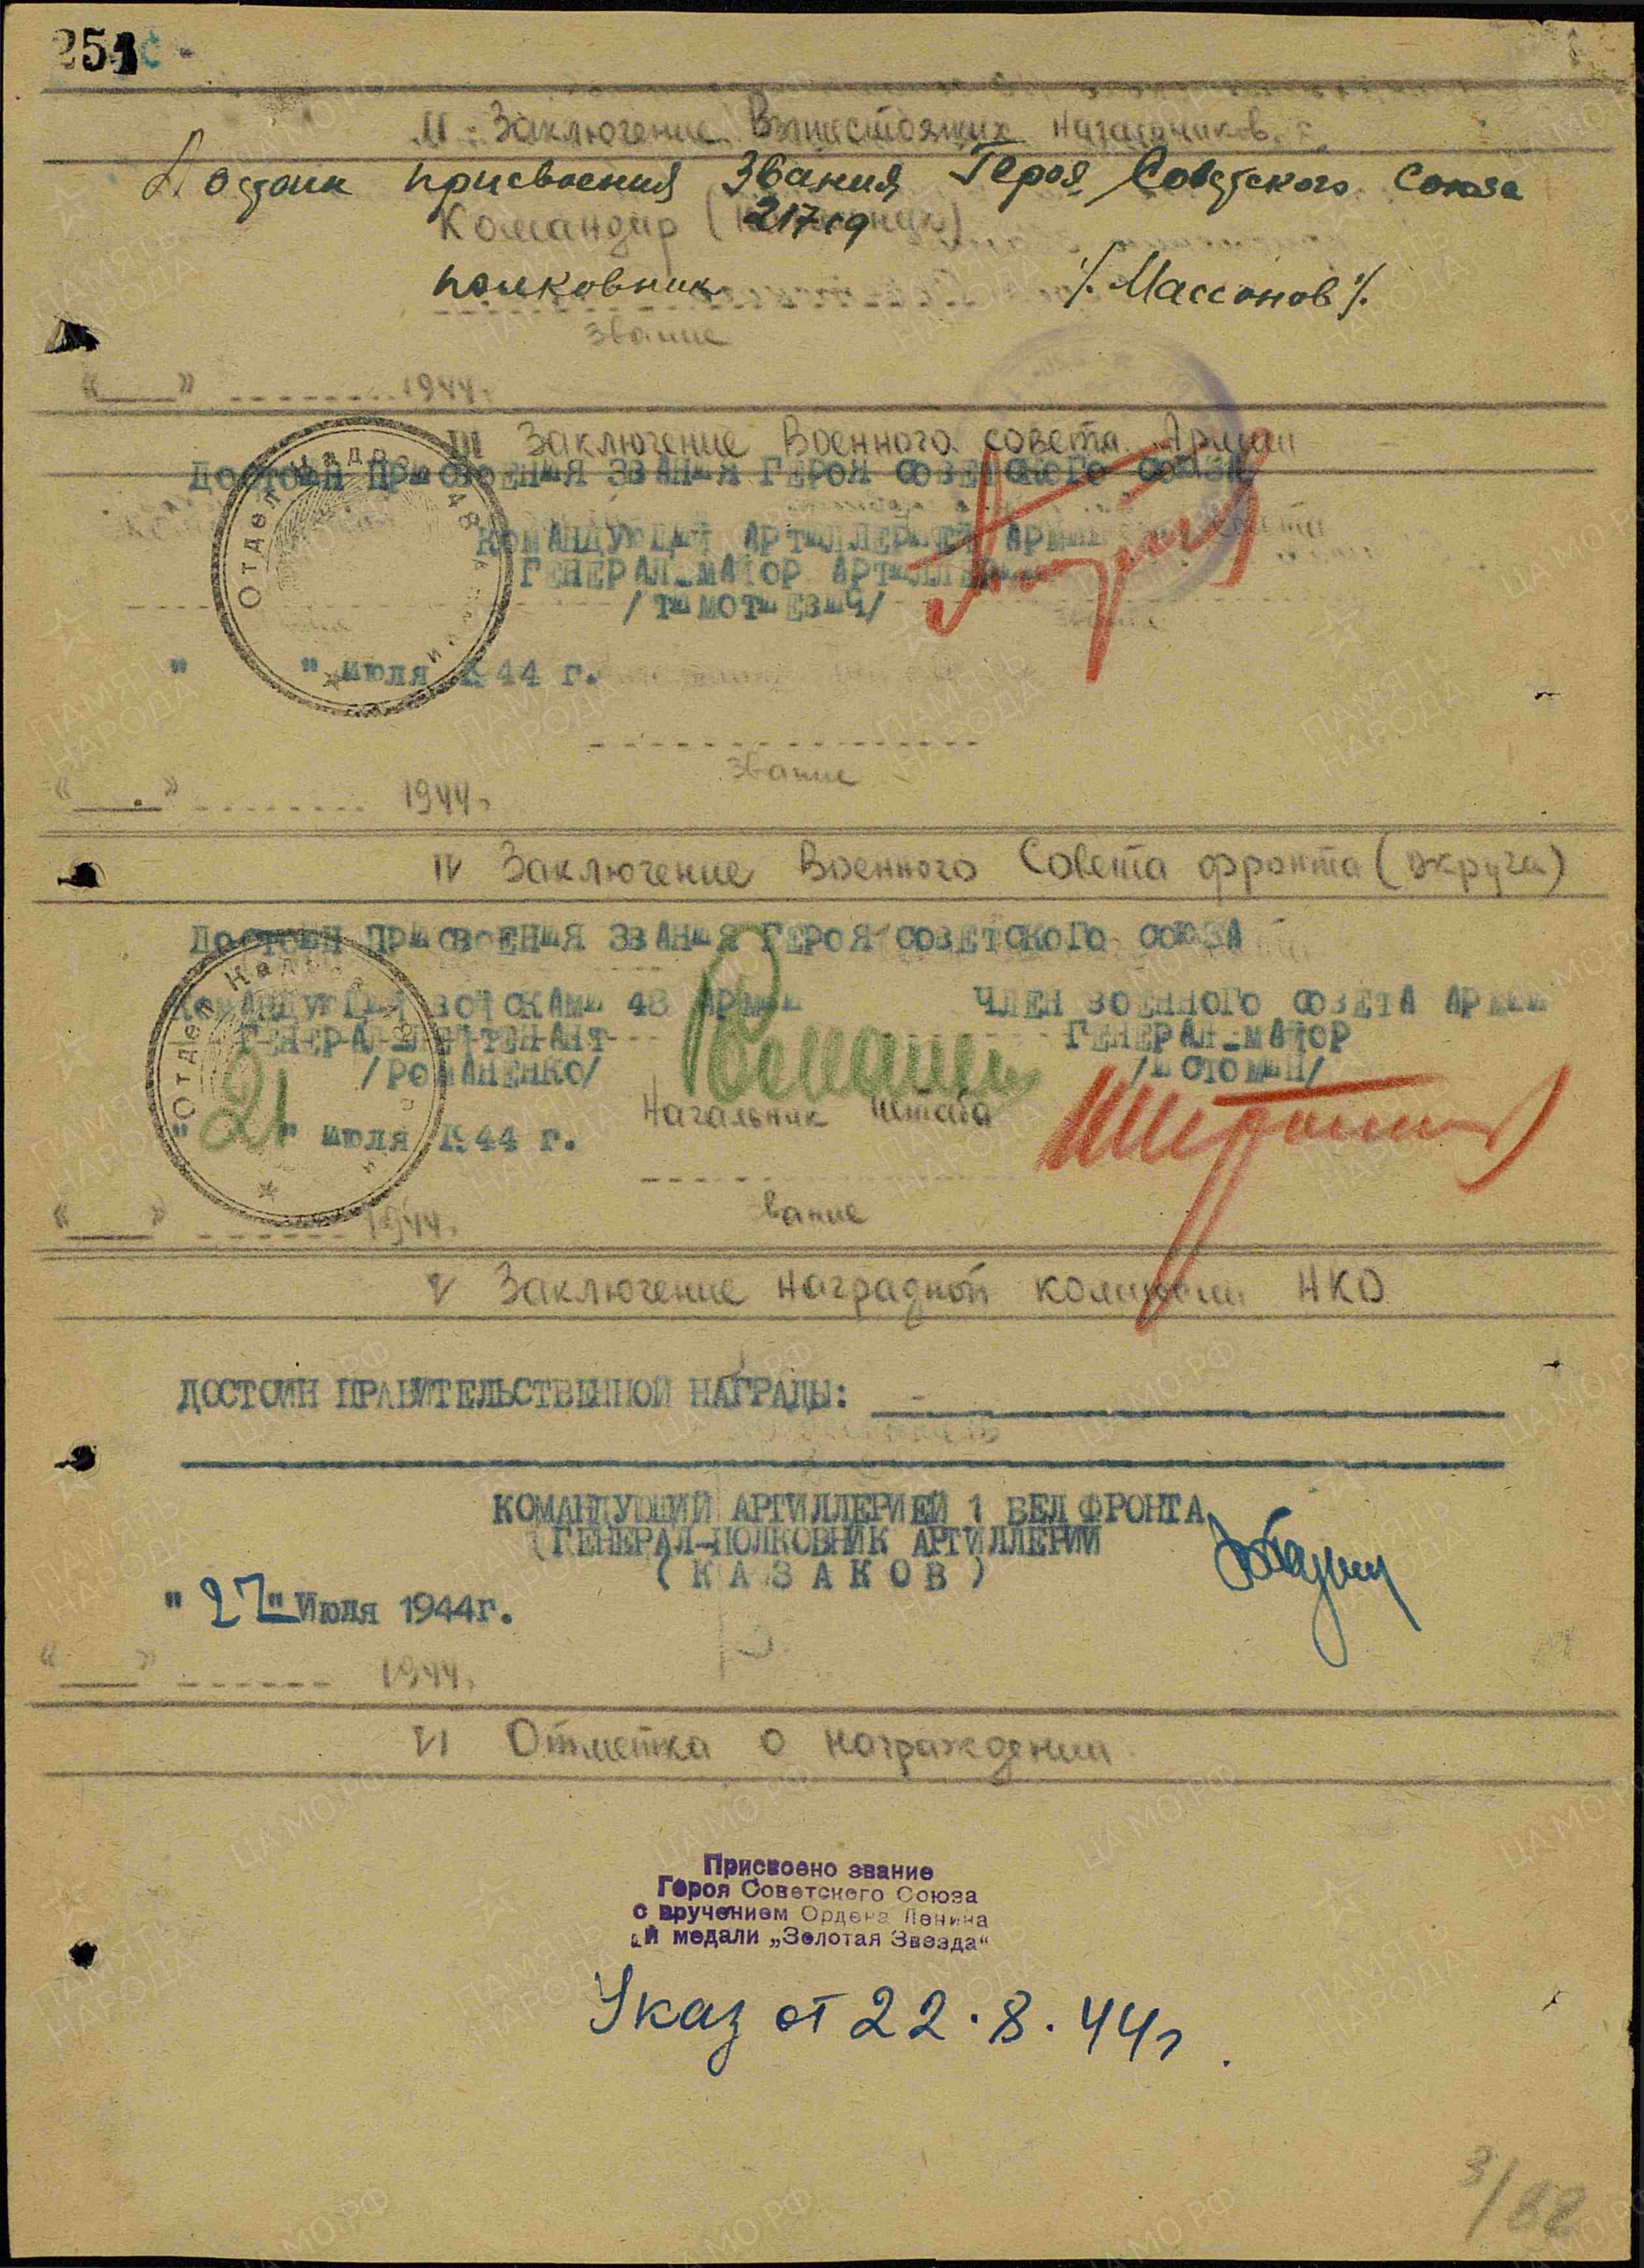 251
II Заключение Вышестоящих Начальников.
Достоин присвоения Звания Героя Советского Союза
Командир
217 сд
полковник /. Массонов /.
звание
" " 1944г.
III Заключение Военного совета Армии
ДОСТОИН ПРИСВОЕНИЯ ЗВАНИЯ ГЕРОЯ СОВЕТСКОГО СОЮЗА
КОМАНДУЮЩИЙ АРТИЛЛЕРИЕЙ АРМИИ
ГЕНЕРАЛ-МАЙОР АРТИЛЛЕРИИ
/ТИМОТИЕВИЧ/
" " июля 1944 г.
звание
" " 1944г.
IV Заключение Военного Совета фронта (округа)
ДОСТОИН ПРИСВОЕНИЯ ЗВАНИЯ ГЕРОЯ СОВЕТСКОГО СОЮЗА
КОМАНДУЮЩИЙ ВОЙСКАМИ 48 АРМИИ ЧЛЕН ВОЕННОГО СОВЕТА АРМИИ
ГЕНЕРАЛ-ЛЕЙТЕНАНТ ГЕНЕРАЛ-МАЙОР
/РОМАНЕНКО/ /ИСТОМИН/
Начальник штаба
"21" июля 1944 г.
звание
" " 1944г.
V Заключение наградной комиссии НКО
ДОСТОИН ПРАВИТЕЛЬСТВЕННОЙ НАГРАДЫ:
КОМАНДУЮЩИЙ АРТИЛЛЕРИЕЙ 1 БЕЛ ФРОНТА
ГЕНЕРАЛ-ПОЛКОВНИК АРТИЛЛЕРИИ
(КАЗАКОВ)
"27" Июля 1944г.
" " 1944г.
VI Отметка о награждении
Присвоено звание
Героя Советского Союза
с вручением Ордена Ленина
и медали „Золотая Звезда"
Указ от 22.8.44г.
3/82